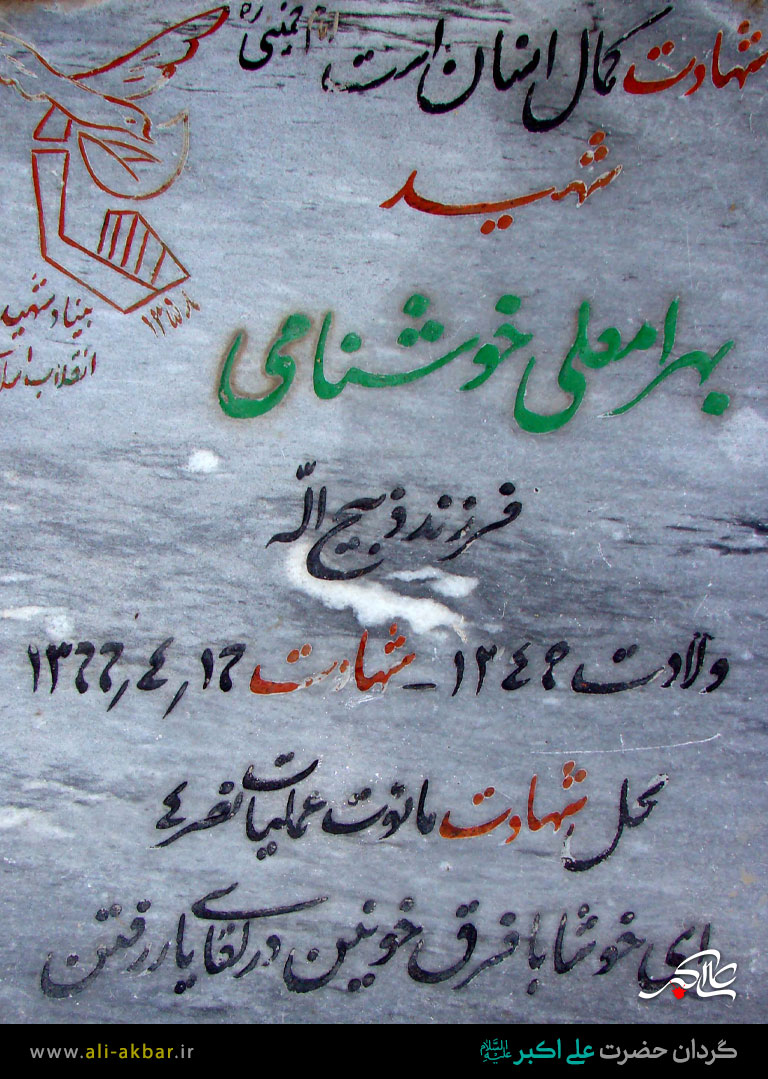 شهادت کمال انسان است، امام خمینی ره
شهید
بهرامعلی خوشنامی
بنیاد شهید
انقلاب اسلا
فرزند ذبیح اله
ولادت ۱۳۴۹ - شهادت ۱۶٫۴٫۱۳۶۶
محل شهادت مائوت عملیات نصر ۴
ای خوشا با فرق خونین در لقای یار رفتن
علی اکبر
گردان حضرت علی اکبر علیه السلام
www.ali-akbar.ir